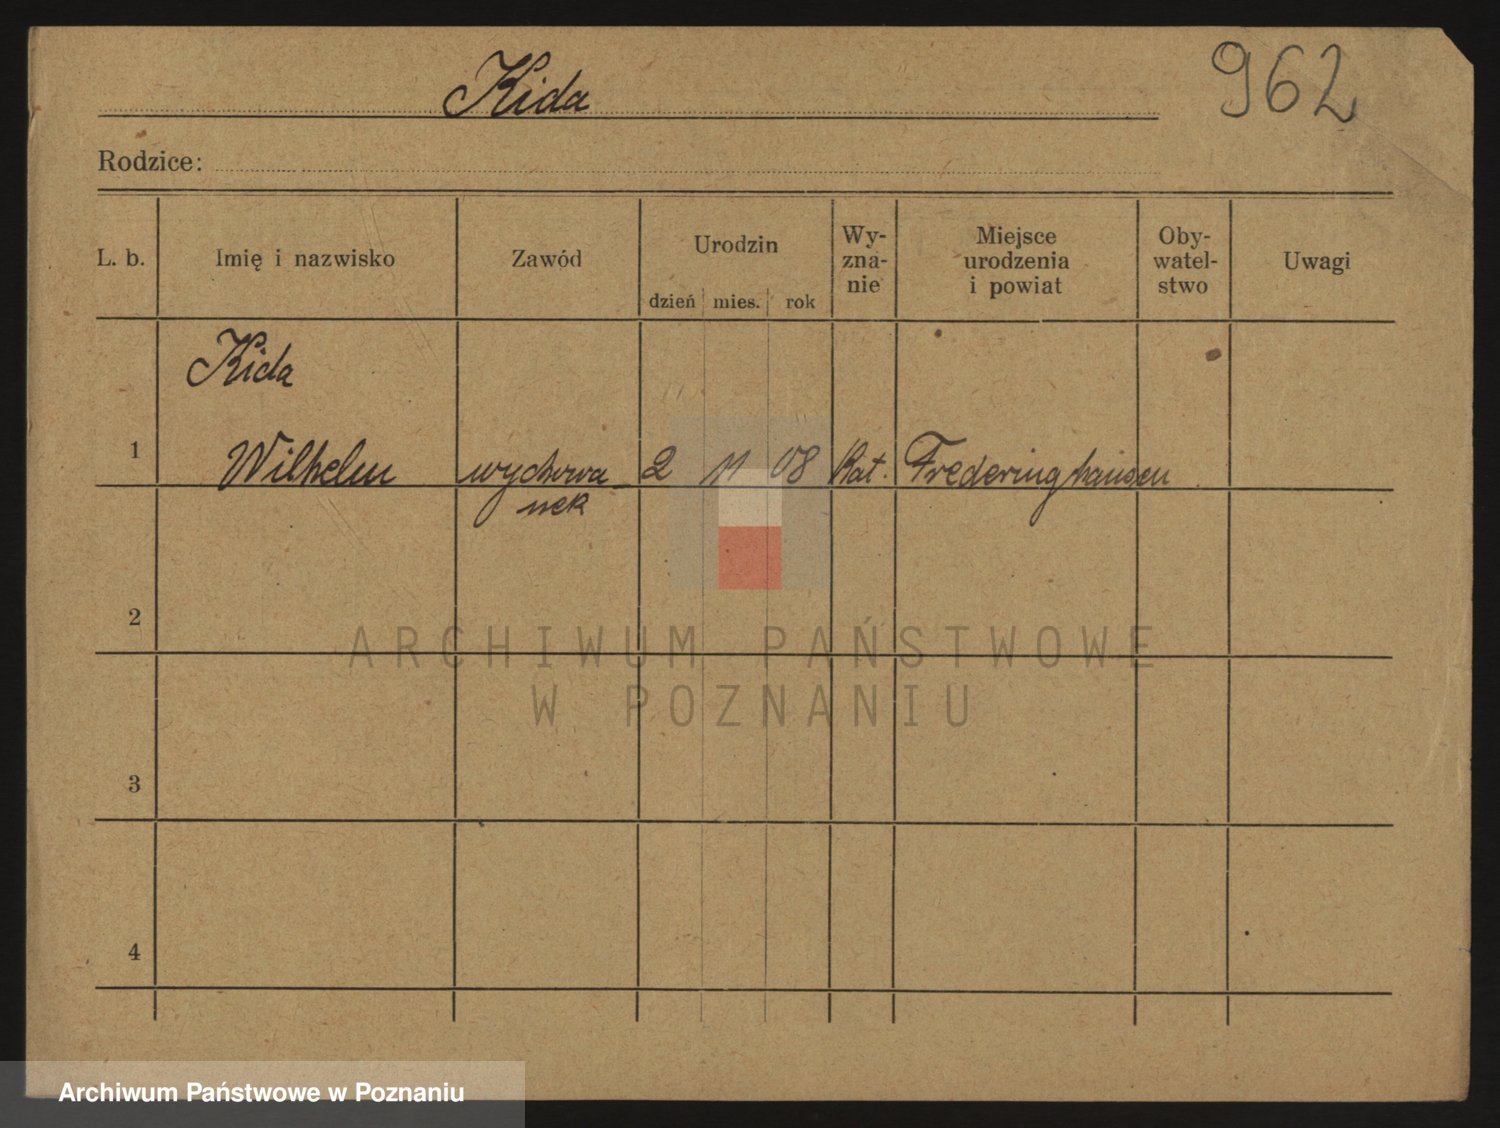 Kida
962
Rodzice:
L. b.
Imię i nazwisko
Zawód
Urodzin
dzień mies. rok
Wy-
zna-
nie
Miejsce
urodzenia
i powiat
Oby-
watel-
stwo
Uwagi
Kida
1 Wilhelm wychowa 2 11 08 Kat. Frederinghausen
nek
2
3
4
ARCHIWUM PAŃSTWOWE
W POZNANIU
Archiwum Państwowe w Poznaniu